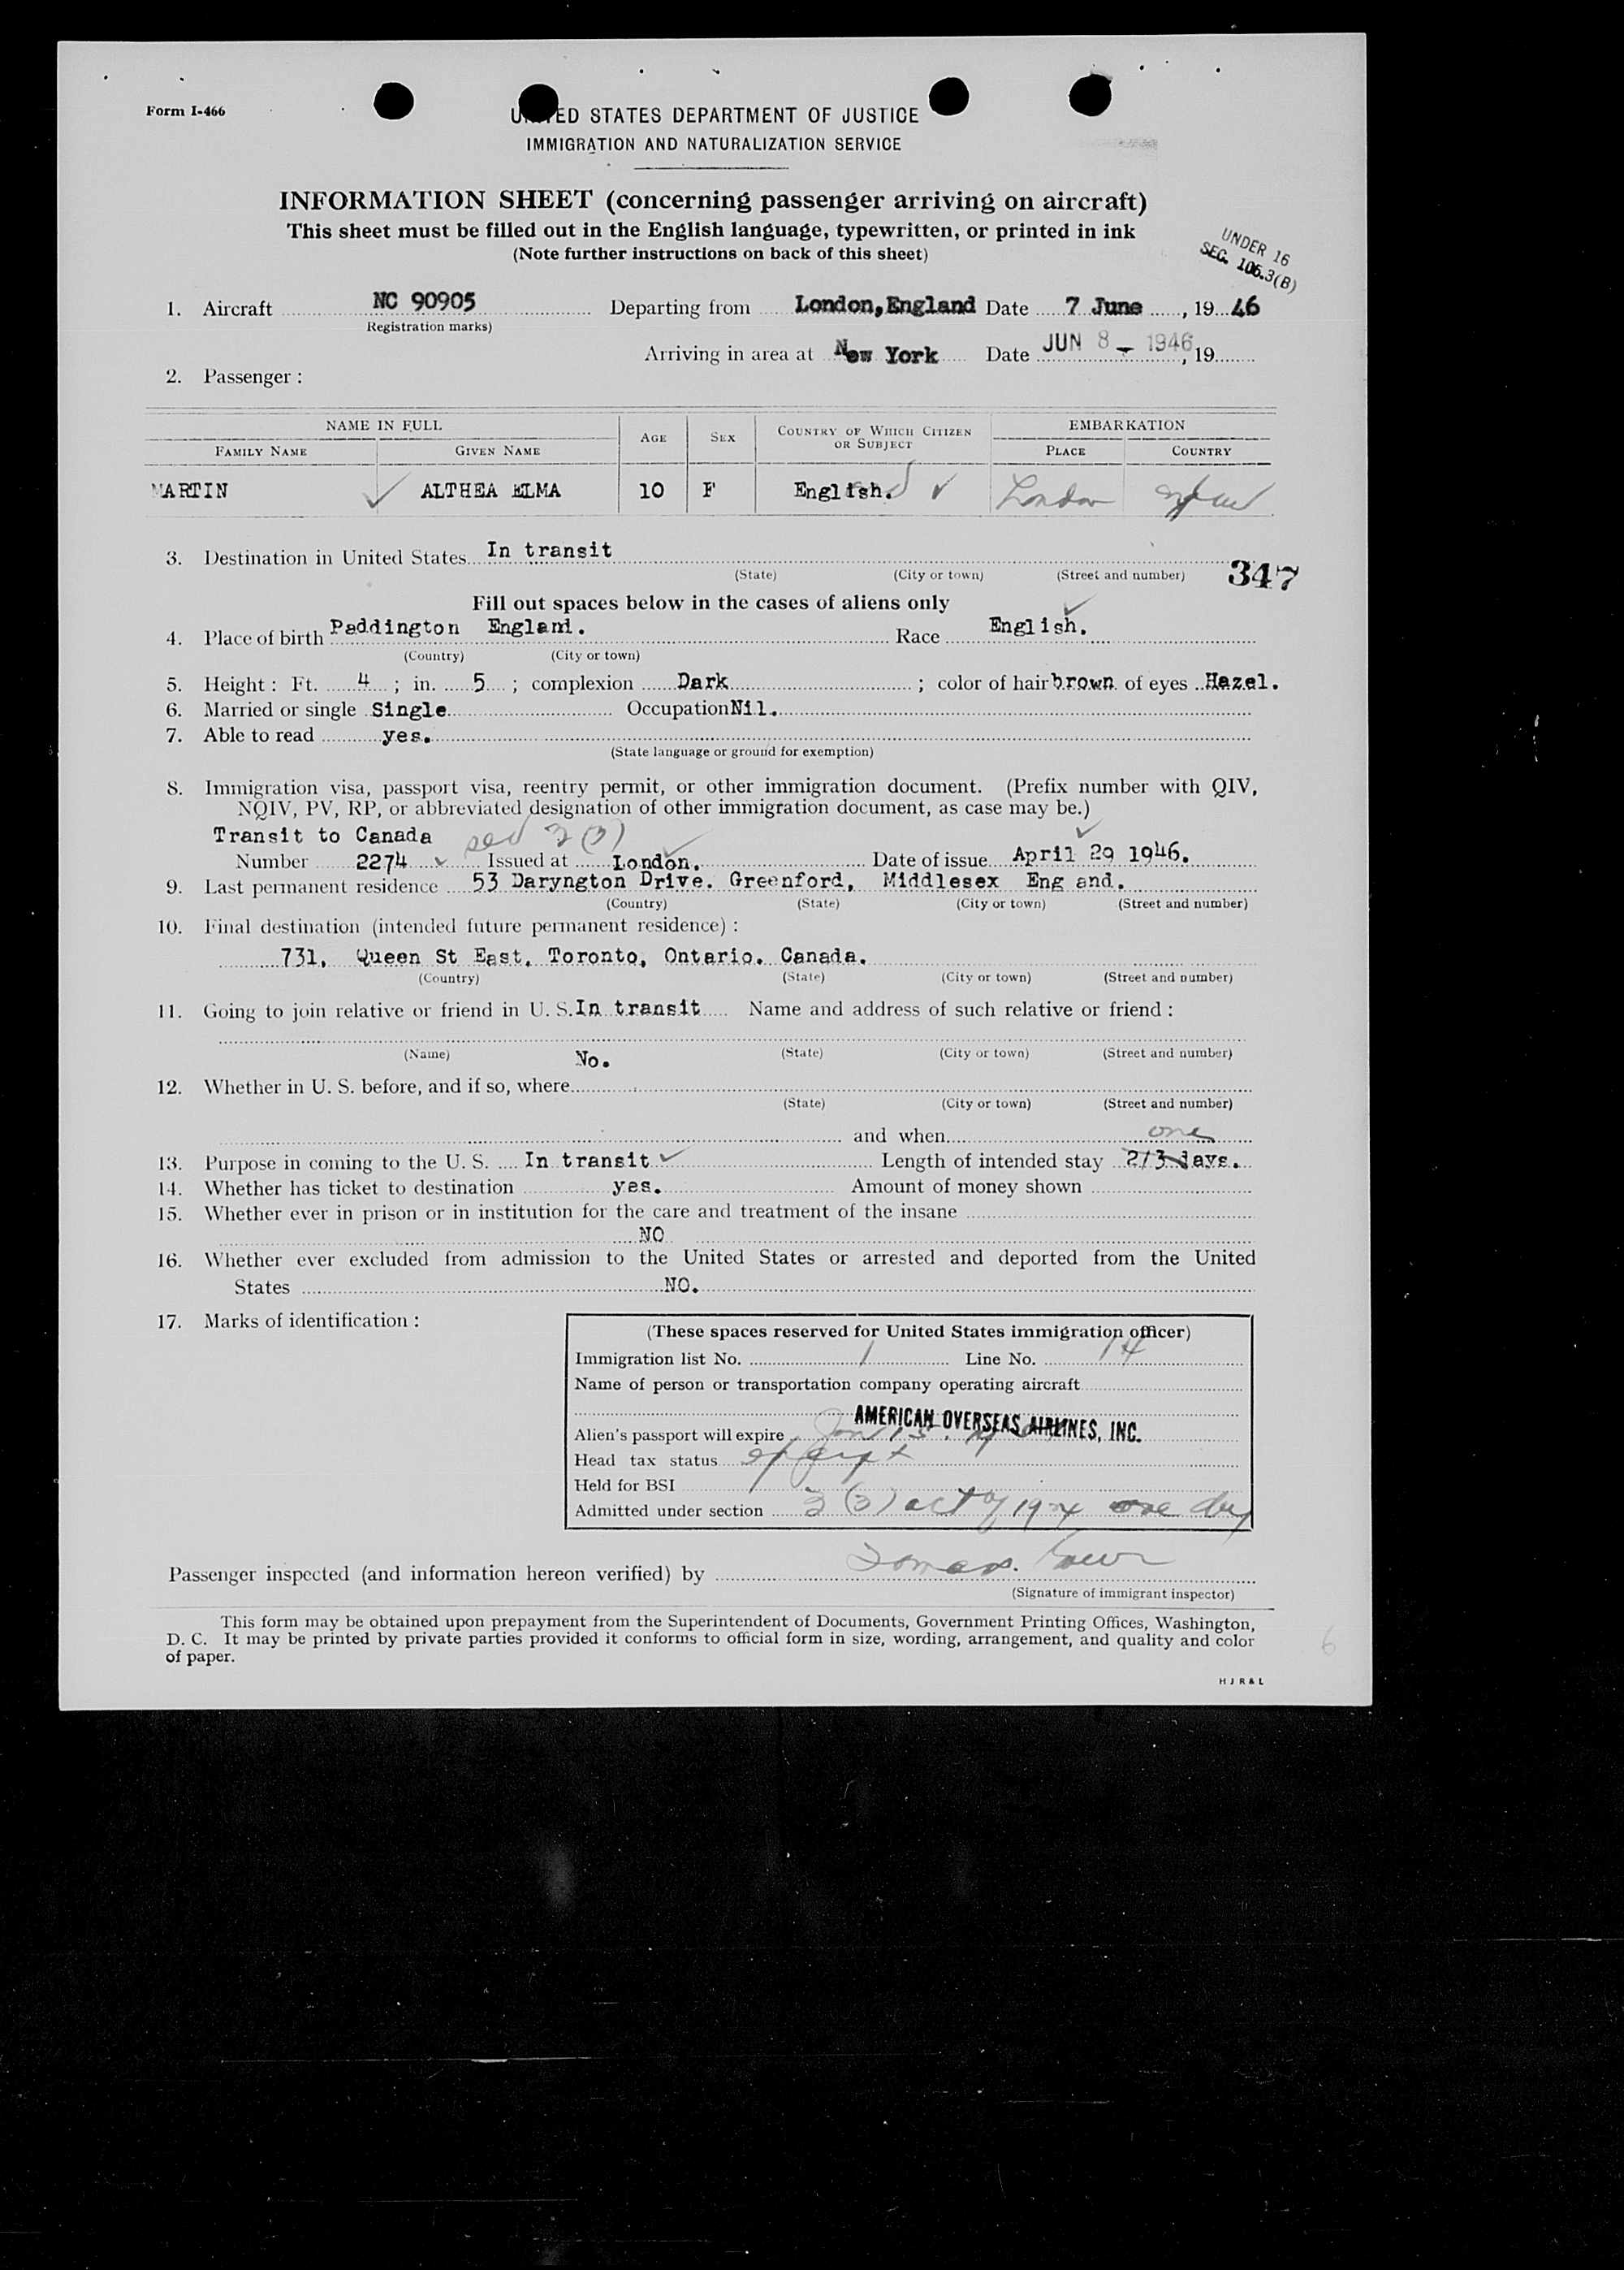 Form I-466
UNITED STATES DEPARTMENT OF JUSTICE
IMMIGRATION AND NATURALIZATION SERVICE
INFORMATION SHEET (concerning passenger arriving on aircraft)
This sheet must be filled out in the English language, typewritten, or printed in ink
(Note further instructions on back of this sheet)
UNDER 16
SEC. 106.3(B)
1. Aircraft NC 90905 Departing from London, England Date 7 June, 19 46
(Registration marks)
Arriving in area at New York Date JUN 8 - 1946, 19
2. Passenger :
NAME IN FULL AGE SEX COUNTRY OF WHICH CITIZEN OR SUBJECT EMBARKATION
FAMILY NAME GIVEN NAME PLACE COUNTRY
MARTIN ✓ ALTHEA ELMA 10 F English. ✓ London
3. Destination in United States In transit
(State) (City or town) (Street and number) 347
Fill out spaces below in the cases of aliens only
4. Place of birth Paddington Englani. Race English.
(Country) (City or town)
5. Height : Ft. 4 ; in. 5 ; complexion Dark ; color of hair brown of eyes Hazel.
6. Married or single Single Occupation Nil.
7. Able to read yes.
(State language or ground for exemption)
8. Immigration visa, passport visa, reentry permit, or other immigration document. (Prefix number with QIV,
NQIV, PV, RP, or abbreviated designation of other immigration document, as case may be.)
Transit to Canada
Number 2274 ✓ Issued at London. Date of issue April 29 1946.
9. Last permanent residence 53 Daryngton Drive. Greenford, Middlesex Eng and.
(Country) (State) (City or town) (Street and number)
10. Final destination (intended future permanent residence) :
731, Queen St East, Toronto, Ontario. Canada.
(Country) (State) (City or town) (Street and number)
11. Going to join relative or friend in U. S. In transit Name and address of such relative or friend :
(Name) (State) (City or town) (Street and number)
No.
12. Whether in U. S. before, and if so, where
(State) (City or town) (Street and number)
and when
one
13. Purpose in coming to the U. S. In transit ✓ Length of intended stay 2/3 days.
14. Whether has ticket to destination yes. Amount of money shown
15. Whether ever in prison or in institution for the care and treatment of the insane
NO
16. Whether ever excluded from admission to the United States or arrested and deported from the United
States NO.
17. Marks of identification :
(These spaces reserved for United States immigration officer)
Immigration list No. 1 Line No. 14
Name of person or transportation company operating aircraft
AMERICAN OVERSEAS AIRLINES, INC.
Alien's passport will expire
Head tax status
Held for BSI
Admitted under section 3 (3) act of 1924 one day
Passenger inspected (and information hereon verified) by
(Signature of immigrant inspector)
This form may be obtained upon prepayment from the Superintendent of Documents, Government Printing Offices, Washington,
D. C. It may be printed by private parties provided it conforms to official form in size, wording, arrangement, and quality and color
of paper.
6
H J R & L